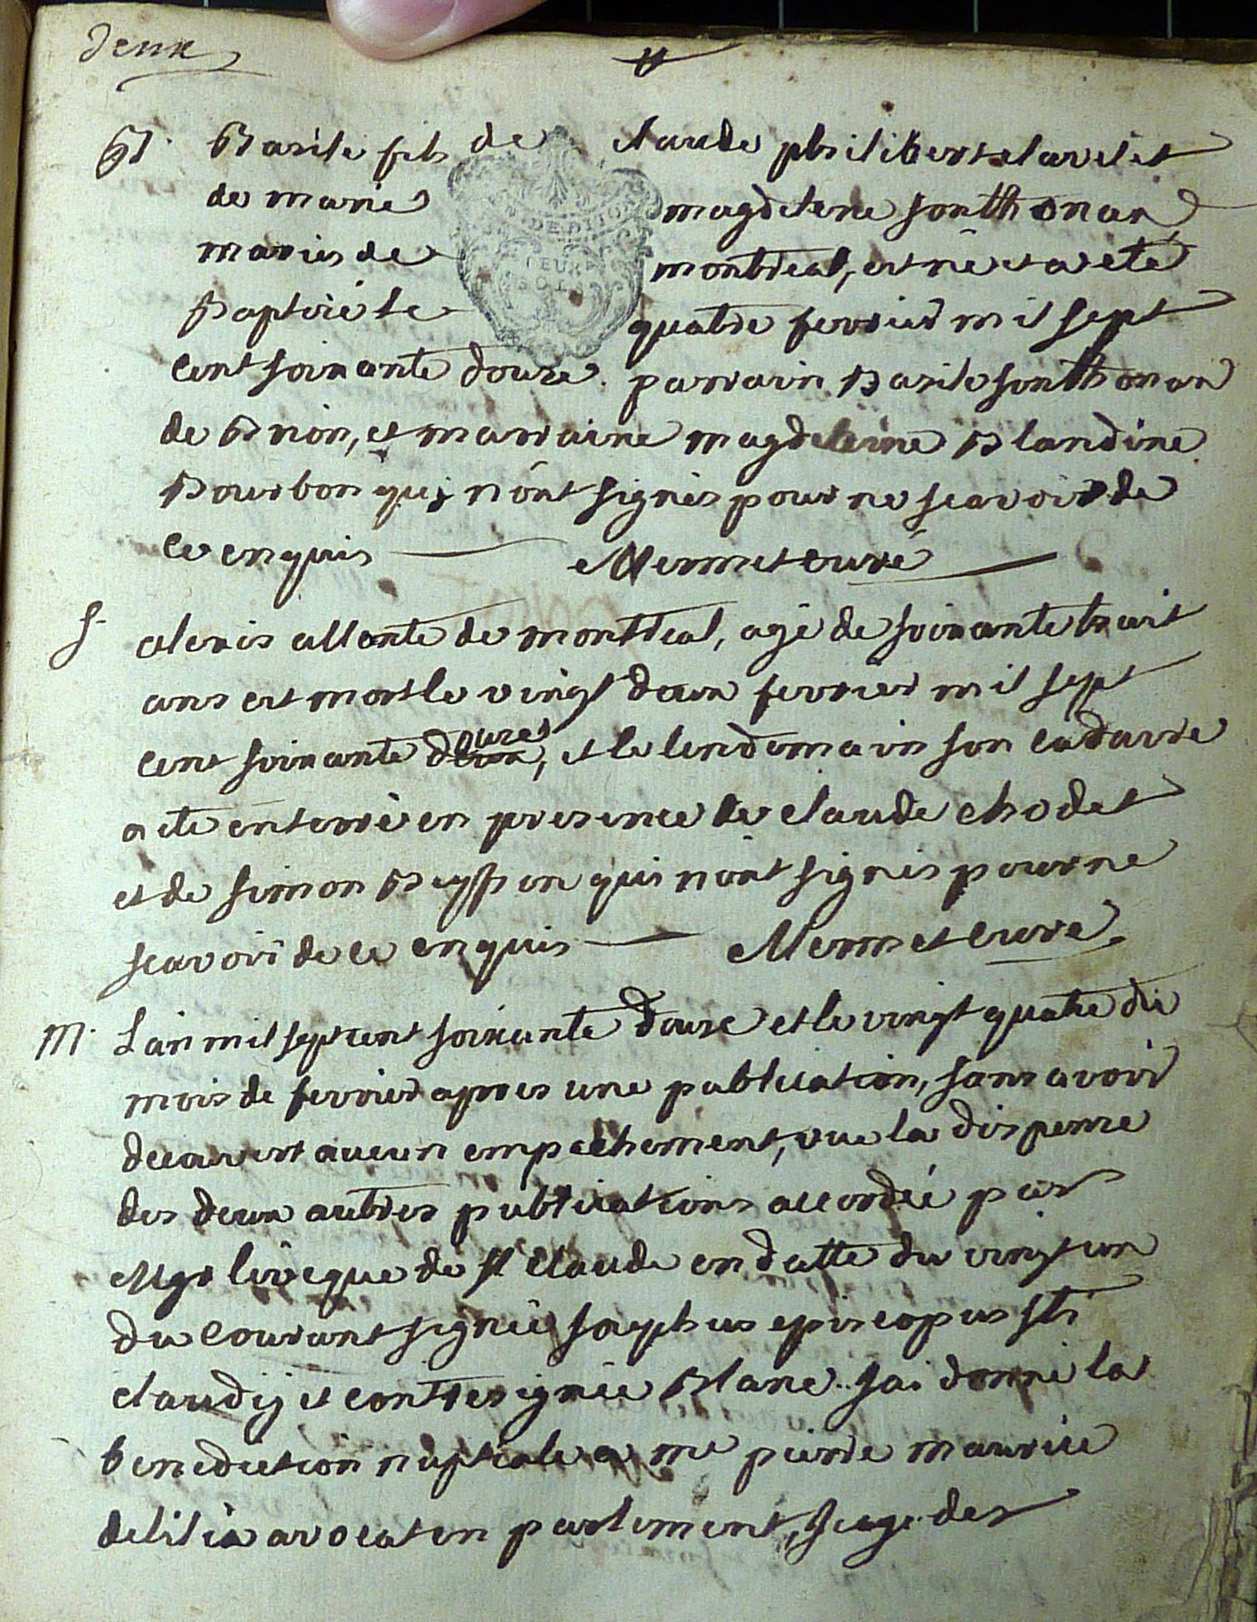 deux
B. Basile fils de claude philibert clavel et
de marie magdelene sonthonax
mariés de montreal, est né et a eté
Baptisé le quatre fevrier mil sept
cent soixante douze. parrain Basile sonthonax
de Brion, et marraine magdeleine Blandine
Bourbon qui n'ont signés pour ne scavoir de
ce enquis Mermet curé
S. alexis allante de montreal, agé de soixante huit
ans est mort le vingt deux fevrier mil sept
cent soixante douze, et le lendemain son cadavre
a eté enterré en presence de claude chodet
et de simon qui n'ont signés pour ne
scavoir de ce enquis Mermet curé.
M. L'an mil sept cent soixante douze et le vingt quatre du
mois de fevrier apres une publication, sans avoir
decouvert aucun empechement, vue la dispense
des deux autres publications accordée par
Mgr l'éveque de st Claude en datte du vingt un
du courant signée josephus episcopus sti
claudij et contresignée Blanc. jai donné la
benediction nuptiale a me pierre maurice
delilia avocat en parlement, juge des